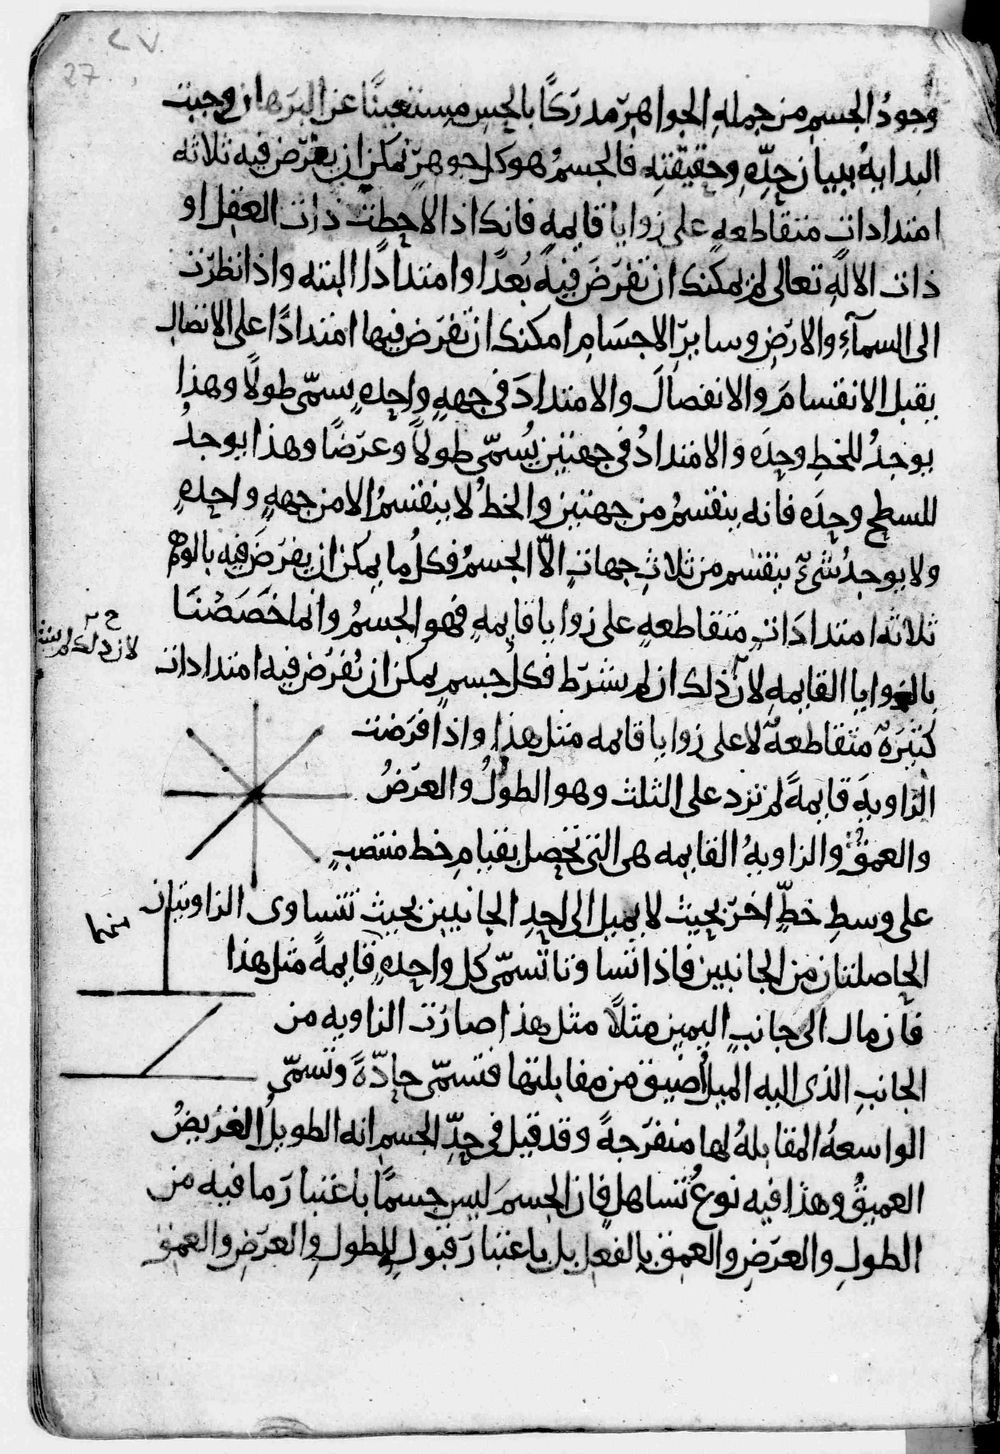 ٢٧
27
وجودُ الجسمِ من جملهِ الجواهرِ مدركًا بالحسِ مستغنيًا عن البرهان وجبت
البدايهُ ببيان حدِّهِ وحقيقتِهِ فالجسمُ هو كل جوهرٍ يمكن ان يفرض فيه ثلاثه
امتدادات متقاطعهٍ على زوايا قايمهٍ فانك اذا لاحظت ذات العقل او
ذات الالهِ تعالى لم يمكنك ان تفرضَ فيه بُعدًا وامتدادًا البته واذا نظرت
الى السمآءِ والارضِ وسايرِ الاجسَامِ امكنك ان تفرض فيها امتدادًا على الاتصالِ
يقبل الانقسامَ والانفصالَ والامتدادَ فى جههٍ واحدهٍ يسمّى طولاً وهذا
يوجدُ للخطِ وحدَه والامتدادُ فى جهتين يُسمّى طولاً وعرضًا وهذا يوجدُ
للسطحِ وحدَه فانه ينقسمُ من جهتين والخطُ لا ينقسمُ الا من جههٍ واحدهٍ
ولا يوجدُ شىءٌ ينقسم من ثلاثِ جهاتٍ الاّ الجسمُ فكلُ ما يمكن ان يفرضَ فيه بالوهم
ثلاثه امتدادَاتٍ متقاطعهٍ على زوايا قايمهٍ فهو الجسمُ وانما خصَصْنَا
بالزوايا القايمهِ لانّ ذلك ان لم يشرَط فكل جسمٍ يمكن ان يُفرض فيه امتدادات
لان ذلك لم
كثيرَهٌ متقاطعهٌ لا على زوايا قايمه مثل هذا واذا فرضت
الزاويهَ قايمهً لم تزد على الثلث وهو الطولُ والعرضُ
والعمقُ والزاويهُ القايمه هى التى تحصل بقيامِ خط منتصبٍ
على وسطِ خطٍّ اخرَ بحيث لا يميل الى احدِ الجانبين بحيث تتساوى الزاويتان
الحاصلتان من الجانبين فاذا تساوتا تسمّى كل واحدهٍ قايمهً مثل هذا
فان مال الى جانبِ اليمينِ مثلاً مثل هذا صارت الزاويه من
الجانبِ الذى اليه الميلُ اضيق من مقابلتها فتسمّى حادّهً وتسمّى
الواسعهُ المقابلهُ لها منفرجهً وقد قيل فى حدِّ الجسمِ انه الطويلُ العريضُ
العميقُ وهذا فيه نوعُ تساهلٍ فان الجسمَ ليس جسمًا باعتبار ما فيه من
الطولِ والعرضِ والعمق بالفعل بل باعتبار قبولِ للطولِ والعرضِ والعمق